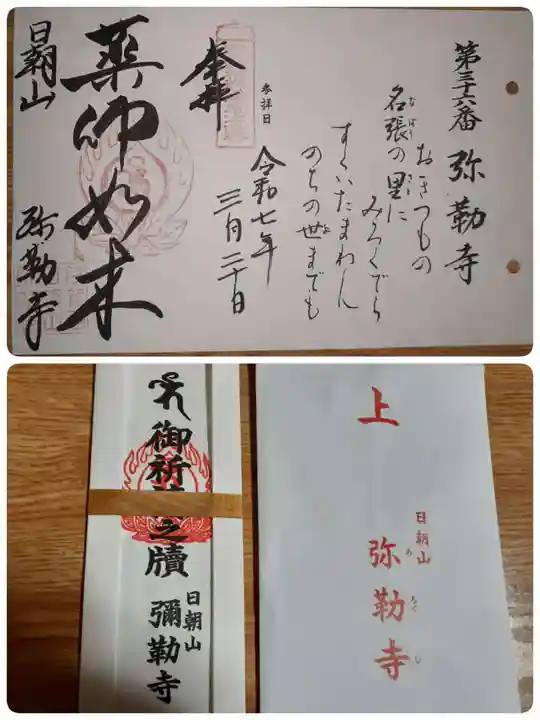 第三十六番 弥勒寺
おきつもの
名張の里に
なばり
みろくでら
すくいたまわん
のちの世までも
よ
参拝日
令和七年
三月二十日
奉拝
薬師如来
日朝山
弥勒寺
御祈祷之牘
日朝山
彌勒寺
上
日朝山
弥勒寺